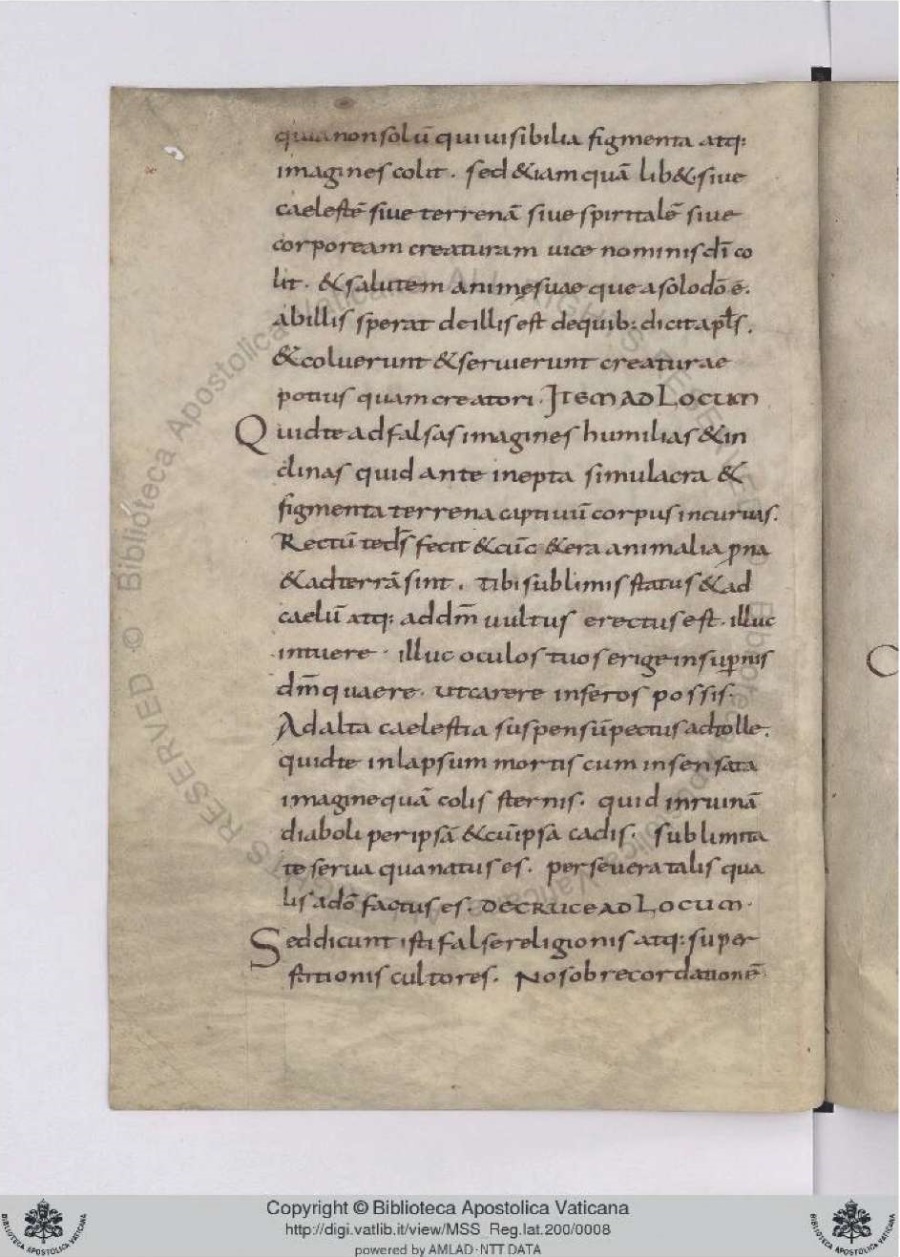 quia non solū qui uisibilia figmenta atq:
imagines colit. sed &iam quā lib& siue
caelestē siue terrenā siue spiritalē siue
corpoream creaturam uice nominis dī co
lit. & salutem animę suae que a solo dō ē.
ab illis sperat de illis est de quib: dicit apl̄s.
& coluerunt & seruierunt creaturae
potius quam creatori. ITEM AD LOCUM
Quid te ad falsas imagines humilias & in
clinas quid ante inepta simulacra &
figmenta terrena captiuū corpus incuruas.
Rectū te ds̄ fecit & cū c&era animalia prna
& ad terrā sint. tibi sublimis status & ad
caelū atq: ad dm̄ uultus erectus est. illuc
intuere. illuc oculos tuos erige in supernis
dm̄ quaere. ut carere inferos possis.
Ad alta caelestia suspensū pectus adtolle.
quid te in lapsum mortis cum insensata
imagine quā colis sternis. quid in ruinā
diaboli per ipsā & cū ipsa cadis. sublimita
te serua qua natus es. perseuera talis qua
lis a dō factus es. DE CRUCE AD LOCUM.
Sed dicunt isti false religionis atq: super
stitionis cultores. Nos ob recordationē
Copyright © Biblioteca Apostolica Vaticana
http://digi.vatlib.it/view/MSS_Reg.lat.200/0008
powered by AMLAD·NTT DATA